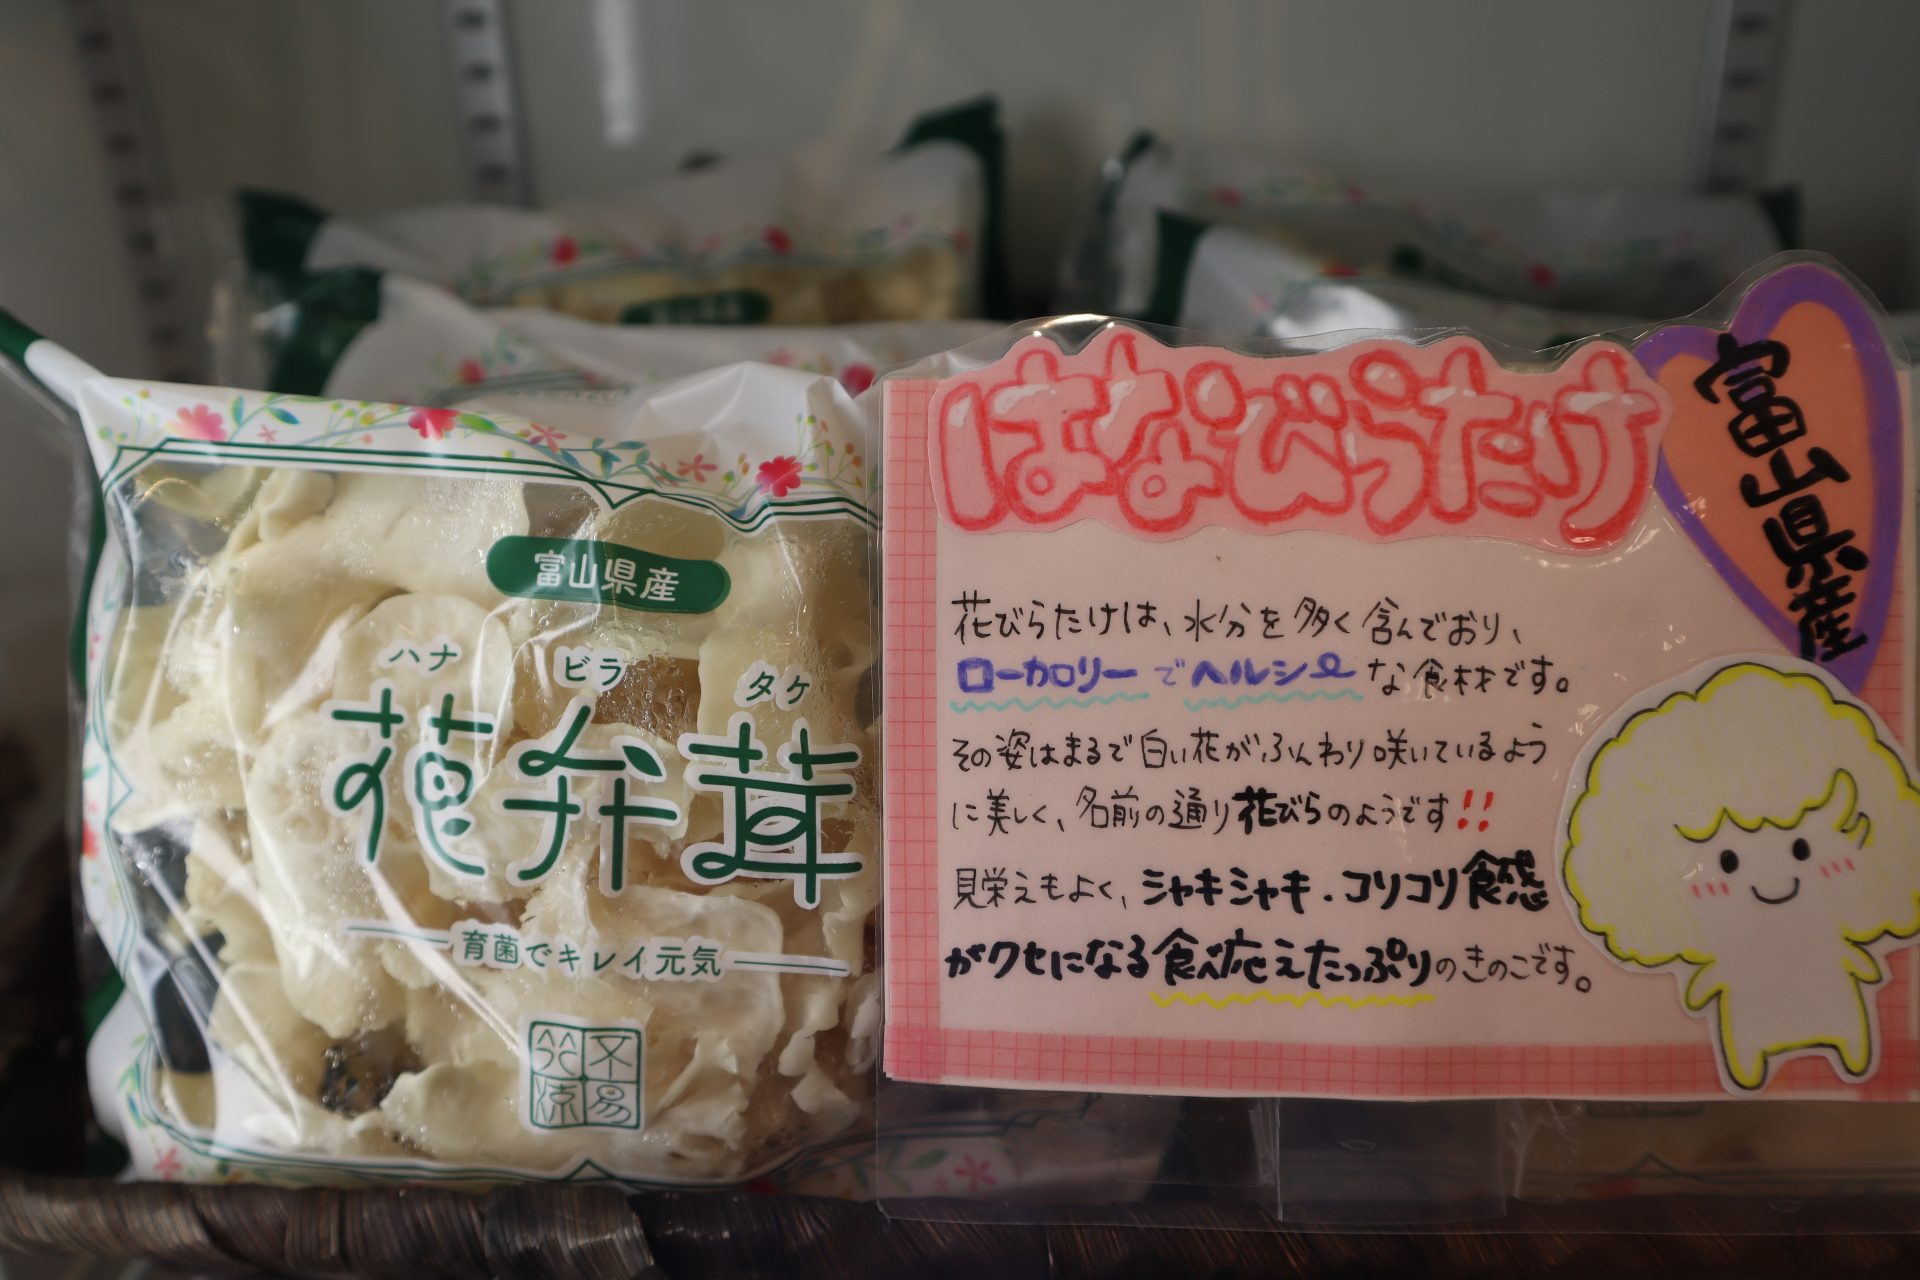 富山県産
ハナ ビラ タケ
花弁茸
育菌でキレイ元気
不易
はなびらたけ
富山県産
花びらたけは、水分を多く含んでおり、
ローカロリーでヘルシーな食材です。
その姿はまるで白い花がふんわり咲いているよう
に美しく、名前の通り花びらのようです!!
見栄えもよく、シャキシャキ・コリコリ食感
がクセになる食べ応えたっぷりのきのこです。